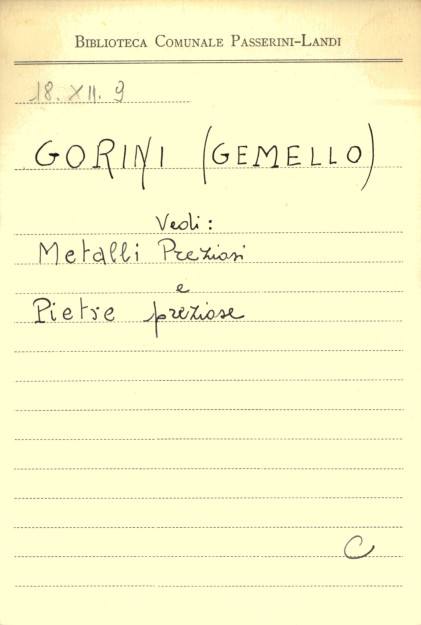 BIBLIOTECA COMUNALE PASSERINI-LANDI
18. XII. 9
GORINI (GEMELLO)
Vedi:
Metalli Preziosi
e
Pietre preziose
C